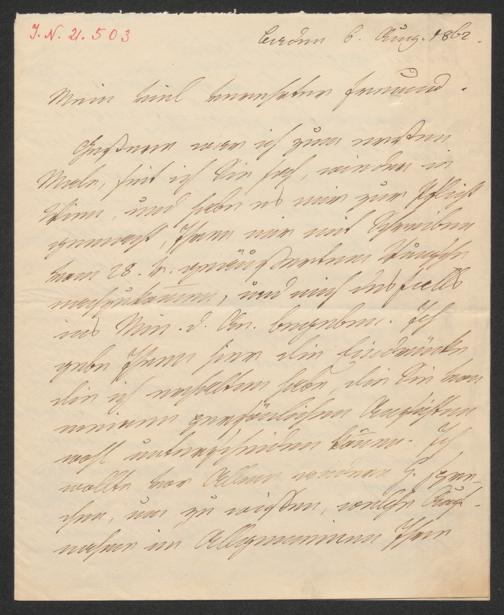 J. N. 21.503
Baden 6. Aug. 1862.
Mein viel verehrter Freund.
Gestern war ich zum ersten
Male, seit ich Sie sah, wieder in
Wien, und habe es mir zur Pflicht
gemacht, Ihrem mir mit Schreiben
vom 28. v. geäußertem Wunsche
nachzukommen, und mich deßfalls
ins Min. d. begeben. Ich
gebe Ihnen hier die Eindrücke
die ich erhalten habe, die Sie von
meinen persönlichen Ansichten
wohl unterscheiden können. Ich
wollte vor Allem spre-
chen, um zu wissen, welche Auf-
nahme im Allgemeinen Ihre